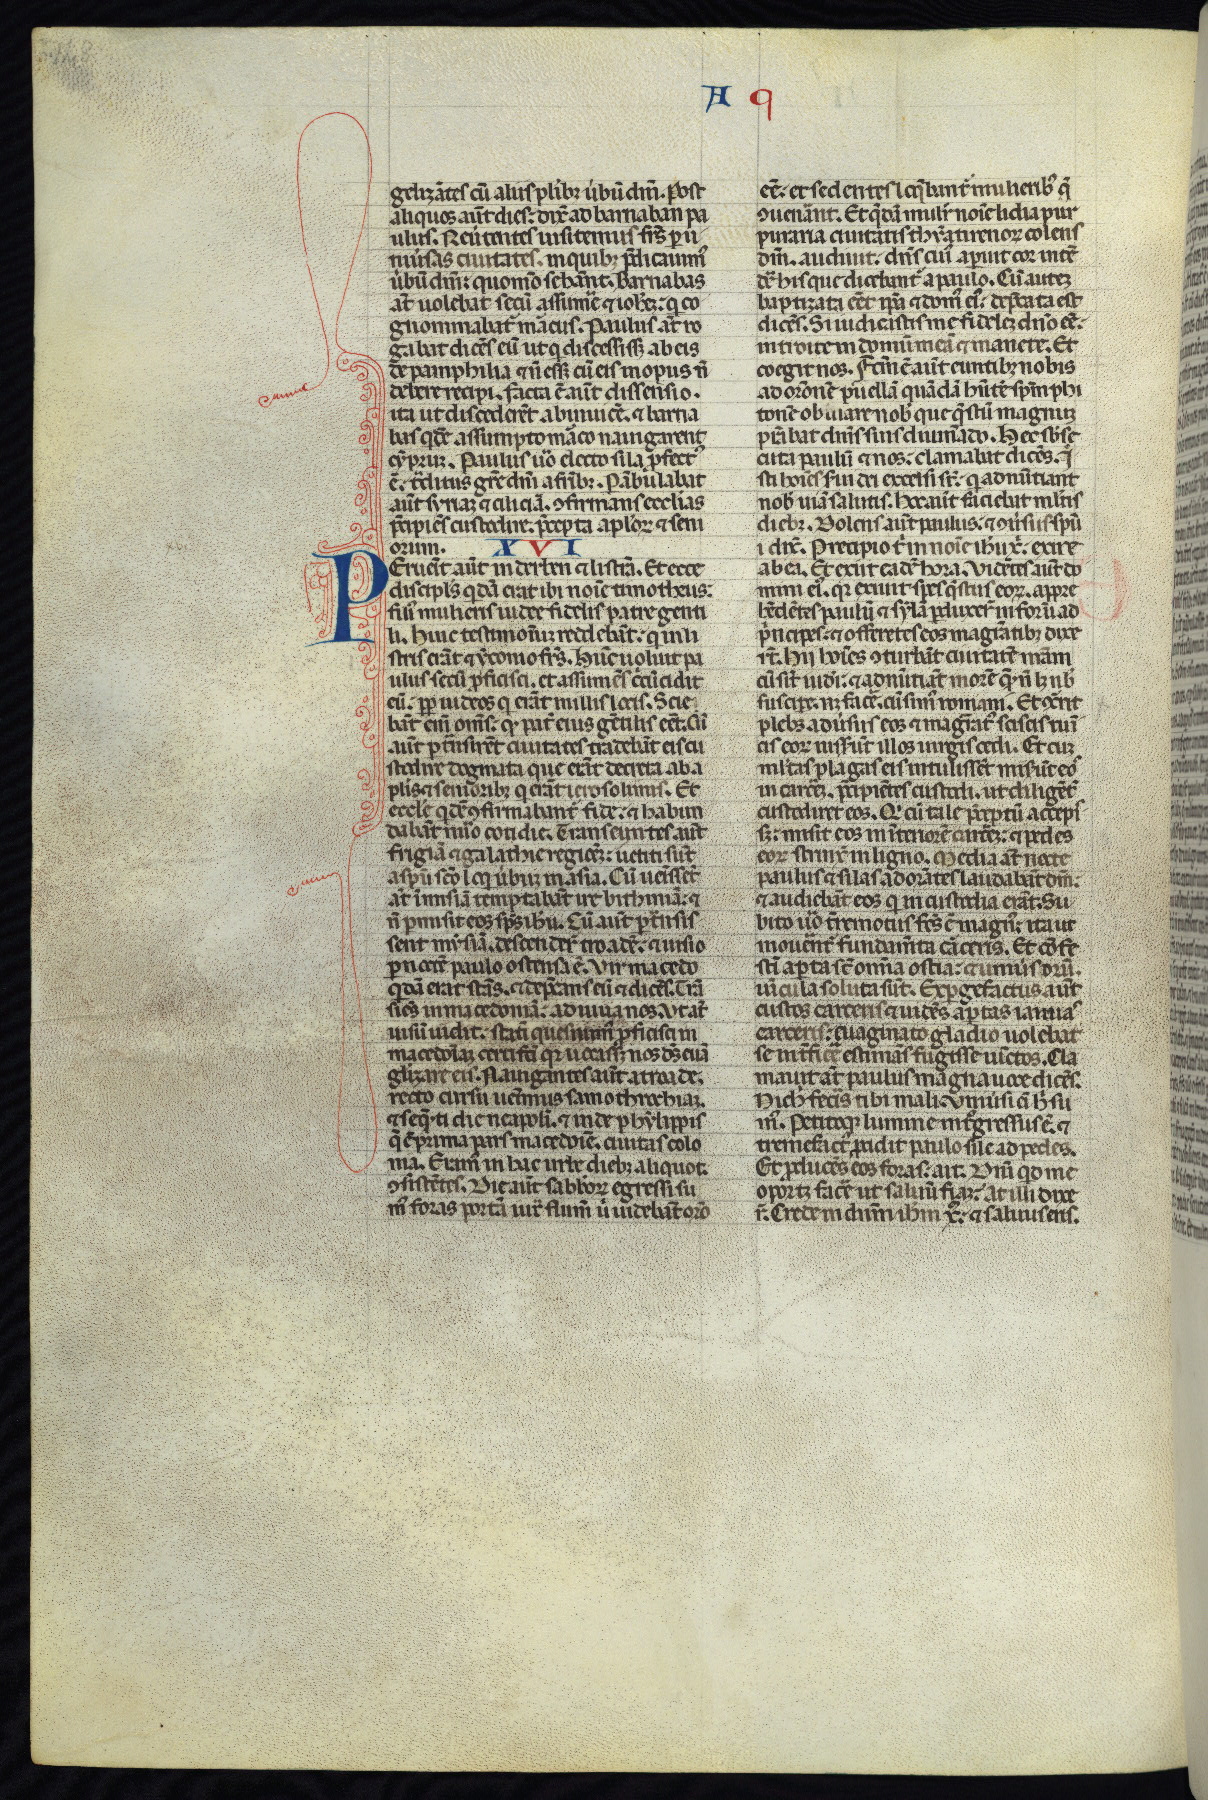 A q
gelizātes cū aliis plib; ūbū dni. Post
aliquos aūt dies: dix̄ ad barnaban pa
ulus. Reūtentes uisitemus frs̄ p̄ ū
niūsas ciuitates. in quib; p̄dicauim᷒
ūbū dnī: quomō se hān̄t. Barnabas
at̄ uolebat secū assumē ⁊ ioħez: q̄ co
gnominabat᷑ marcus. Paulus at̄ ro
gabat dicēs eū ut q̄ discessiss; ab eis
de pamphilia ⁊ n̄ ess; cū eis in opus n̄
debere recipi. facta ē aūt dissensio.
ita ut discederēt abinuicē. ⁊ barna
bas qdē assumpto maco nauigarent
cyprū. Paulus uō electo sila p̄fect᷒
ē. t̄ditus grē dnī a frib;. Pābulabat
aūt syriaz ⁊ ciliciā. ꝯfirmans ecclīas
p̄cipiēs custodire. p̄cepta aplor; ⁊ seni
orum. XVI
Peruēit aūt in derben ⁊ listrā. Et ecce
discipls̄ qdā erat ibi noīe timotheus:
fili᷒ mulieris iudee fidelis patre genti
li. Huic testimoniū reddebāt: q in li
stris erāt ⁊ yconio frs̄. Hūc uoluit pa
ulus secū p̄ficisci. et assumēs cīcūcidit
eū. pp̄ iudeos q̄ erāt in illis locis. Scie
bāt eni oms̄: q pat̄ eius gētilis eēt. Cū
aūt ptūsirēt ciuitates tradebāt eis cu
stodire dogmata que erāt decreta ab a
plis ⁊ seniorib; q̄ erāt ierosolimis. Et
eccl̄e qdē ꝯfirmabant᷑ fide: ⁊ habun
dabāt nūo cotidie. Transeuntes aūt
frigiā ⁊ galathie regionē: uetiti sūt
a spū scō loq̄ ūbuz in asia. Cū uenissēt
at̄ in misiā temptabāt ire bithiniā: ⁊
n̄ pmisit eos sps̄ ihu. Cū aūt ptūsis
sent mysiā. descender̄ troadē. ⁊ uisio
p noctē paulo ostensa ē. Vir macedo
qdā erat stās. ⁊ dep̄cans eū ⁊ dicēs. Trā
siēs in macedoniā: adiuua nos. Vt at̄
uisū uidit: statī quesiuim᷒ p̄ficisci in
macedoīaz certi fc̄i qr uocass; nos ds̄ euā
glizare eis. Nauigantes aūt a troade.
recto cursu uenimus samothrachiaz.
⁊ seq̄nti die neapoli. ⁊ inde phylippis
q̄ ē prima pars macedoīe. ciuitas colo
nia. Eram᷒ in hac urbe dieb; aliquot.
ꝯsistētes. Die aūt sabbor; egressi su
m᷒ foras portā iux̄ flum̄ ū uidebāt᷑ orō
eē: et sedentes loq̄bant᷑ mulierib᷒ q̄
ꝯuenānt. Et q̄dā mulr̄ noīe lidia pur
puraria ciuitatis thyatirenor; colens
dm̄. audiuit: dns̄ cui᷒ aperuit cor intē
dē his que dicebant᷑ a paulo. Cū autez
baptizata eēt ipā ⁊ dom᷒ ei᷒: dep̄cata est
dicēs. Si iudicastis me fidelez dn̄o eē:
introite in domū meā ⁊ manete. Et
coegit nos. Fctm ē aūt euntib; nobis
ad orōnē puellā quādā hn̄tē spm̄ phi
tonē obuiare nob̄ que q̄stū magnuz
p̄stabat dnīs suis diuinādo. Hec sb̄se
cuta paulū ⁊ nos. clamabat dicēs. I
sti hoīes sui dei excelsi st̄: q̄ adnūtiant
nob̄ uiā salutis. Hoc aūt faciebat mltis
dieb;. Dolens aūt paulus: ⁊ ꝯūsus spū
i dix̄. Precipio t̄ in noīe ihu x̄. exire
ab ea. Et exiit eadē hora. Vidētes aūt do
mini ei᷒. qr exiuit spes q̄stus eor;. appre
hēdētes paulū ⁊ sylā pduxer̄t in forū ad
p̄ncipes: ⁊ offeretes eos magr̄atib; dixe
rt̄. Hii hoīes ꝯturbāt ciuitatē n̄ram
cū sīt iudī: ⁊ adnūtiāt morē quē n̄ l; nob̄
suscipe. n; facē. cū sim᷒ romani. Et ꝯcr̄it
plebs aduīsus eos ⁊ magr̄at᷒ scissis tuni
cis eor; iussūt illos uirgis cedi. Et cuz
ml̄tas plagas eis intulissēt miserūt eos
in carcēz. p̄cipiētes custodi. ut diligēt᷑
custodiret eos. Qi cū tale p̄ceptū accepi
s;: misit eos in īteriorē carcēz: ⁊ pedes
eor; strinx̄ in ligno. Media at̄ nocte
paulus ⁊ silas adorātes laudabāt dm̄:
⁊ audiebāt eos q̄ in custodia erāt. Su
bito uō t̄remotus fcs̄ ē magn᷒: ita ut
mouerēt᷑ fundam̄ta carceris. Et ꝯfe
stī apta sc̄ omīa ostia: ⁊ uniūsor;
uincula soluta sūt. Expgefactus aūt
custos carceris ⁊ uidēs aptas ianuas
carceris: euaginato gladio uolebat
se intficē estimās fugisse uīctos. Cla
mauit at̄ paulus magna uoce dicēs.
Nich̄ fecis tibi mali. Vniūsi ēi hi su
m᷒. Petitoq; lumine intgressus ē. ⁊
tremefact᷒ pcidit paulo ⁊ sile ad pedes.
Et pducēs eos foras: ait. Dnī qd me
oport; facē ut saluū fiaz: At illi dixe
rt̄. Crede in dnm̄ ihm x̄: ⁊ saluus eris.